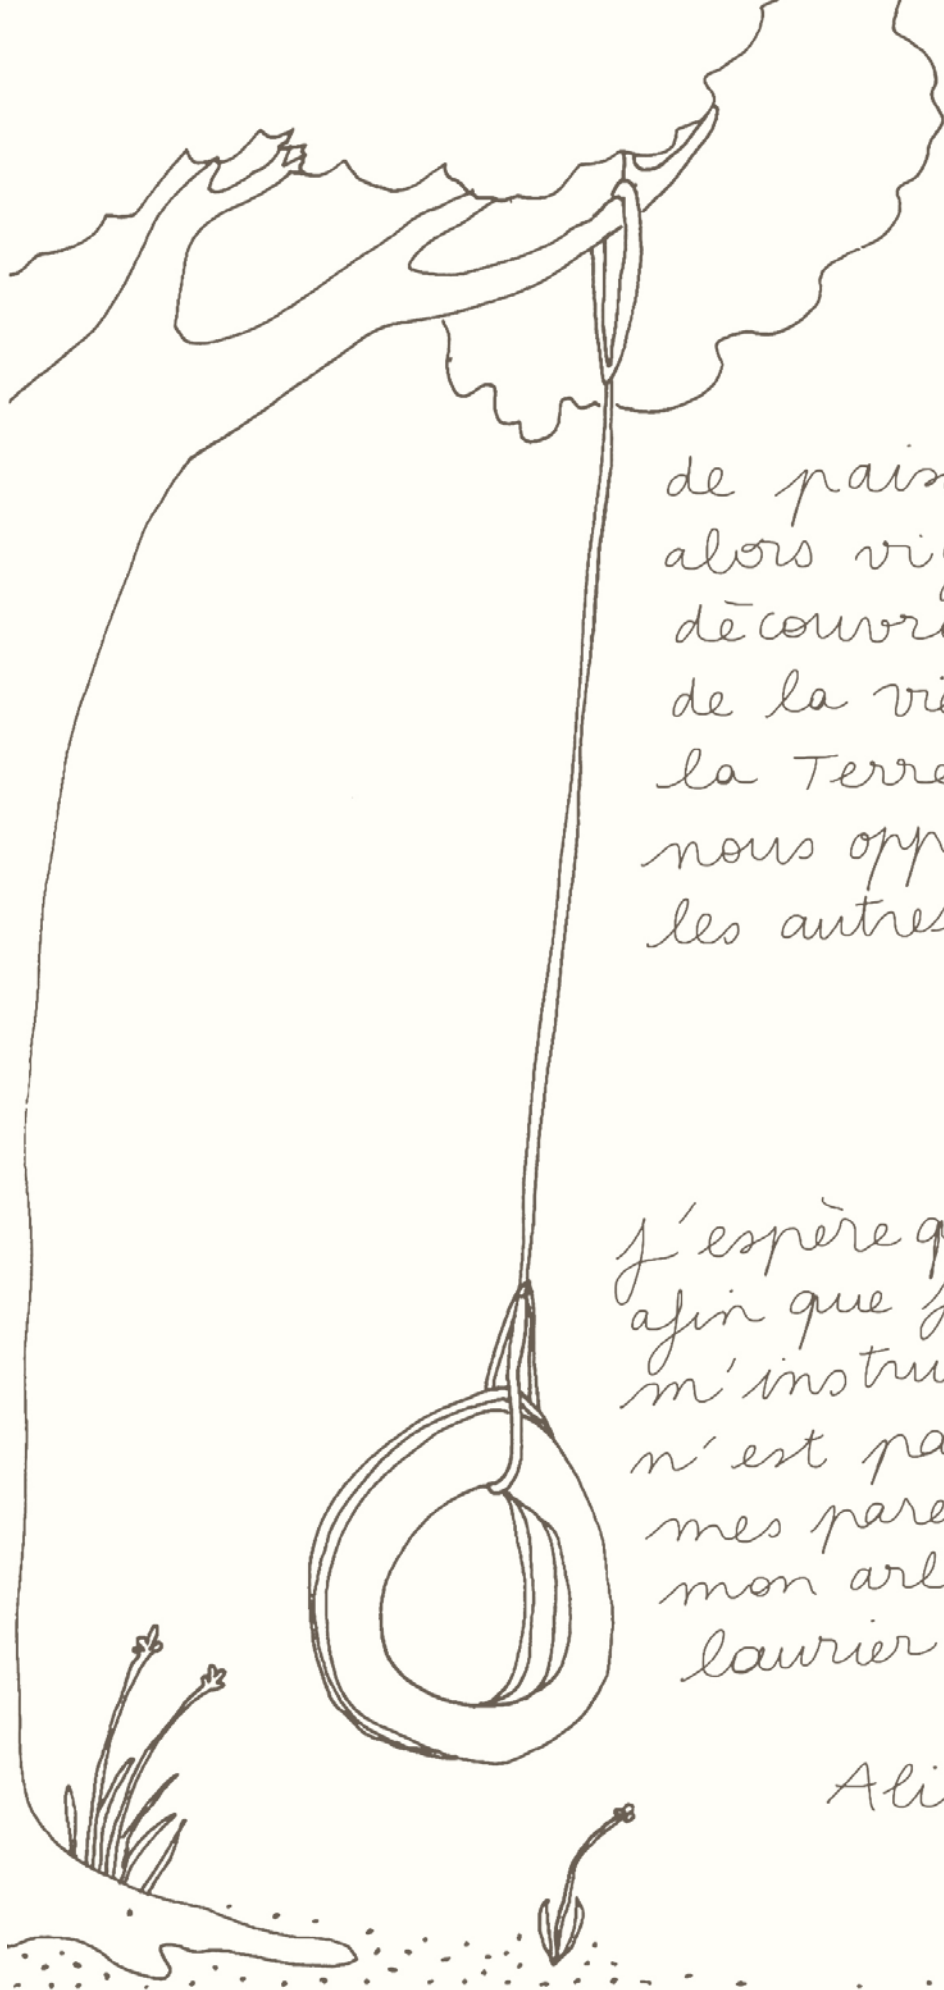 de pais
alors vi
découvr
de la vie
la Terre
nous opp
les autres
j'espère q
afin que j
m'instru
n'est pa
mes pare
mon arb
laurier
Ali